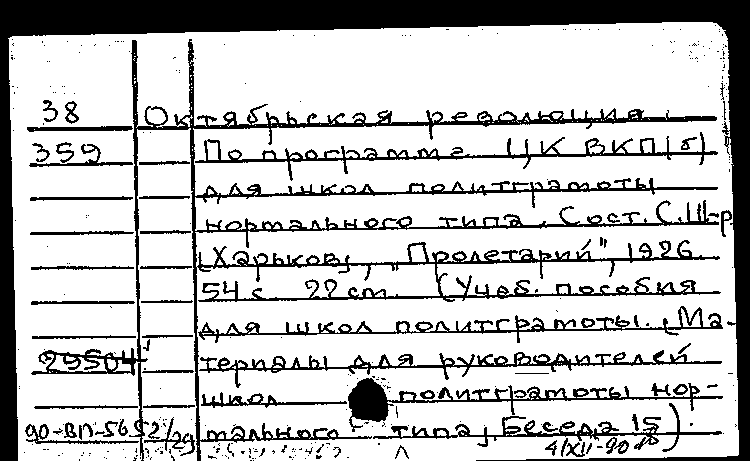 38 Октябрьская революция.
359 По программе ЦК ВКП(б)
для школ политграмоты
нормального типа. Сост. С. Ш-р
[Харьков], „Пролетарий", 1926.
54 с. 22 cm. (Учеб. пособия
для школ политграмоты. [Ма-
29504 териалы для руководителей
школ политграмоты нор-
90-ВП-5652/29 мального типа]. Беседа 15).
4/XII-90